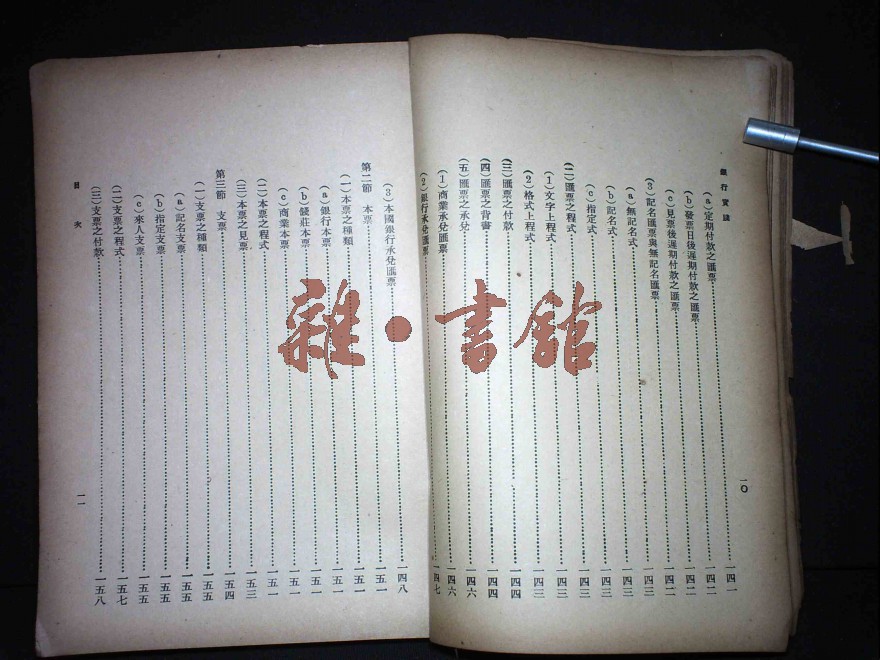 銀行實務
(a)定期付款之匯票……一四一
(b)發票日後遲期付款之匯票……一四二
(c)見票後遲期付款之匯票……一四二
(3)記名匯票與無記名匯票……一四三
(a)無記名式……一四三
(b)記名式……一四三
(c)指定式……一四三
(二)匯票之程式……一四三
(1)文字上程式……一四三
(2)格式上程式……一四三
(三)匯票之付款……一四四
(四)匯票之背書……一四四
(五)匯票之承兌……一四六
(1)商業承兌匯票……一四六
(2)銀行承兌匯票……一四七
一〇
(3)本國銀行承兌匯票……一四八
第二節 本票……一五一
(一)本票之種類……一五一
(a)銀行本票……一五一
(b)錢莊本票……一五一
(c)商業本票……一五一
(二)本票之程式……一五三
(三)本票之見票……一五三
第三節 支票……一五四
(一)支票之種類……一五五
(a)記名支票……一五五
(b)指定支票……一五五
(c)來人支票……一五五
(二)支票之程式……一五七
(三)支票之付款……一五八
目次
一一
雜·書館